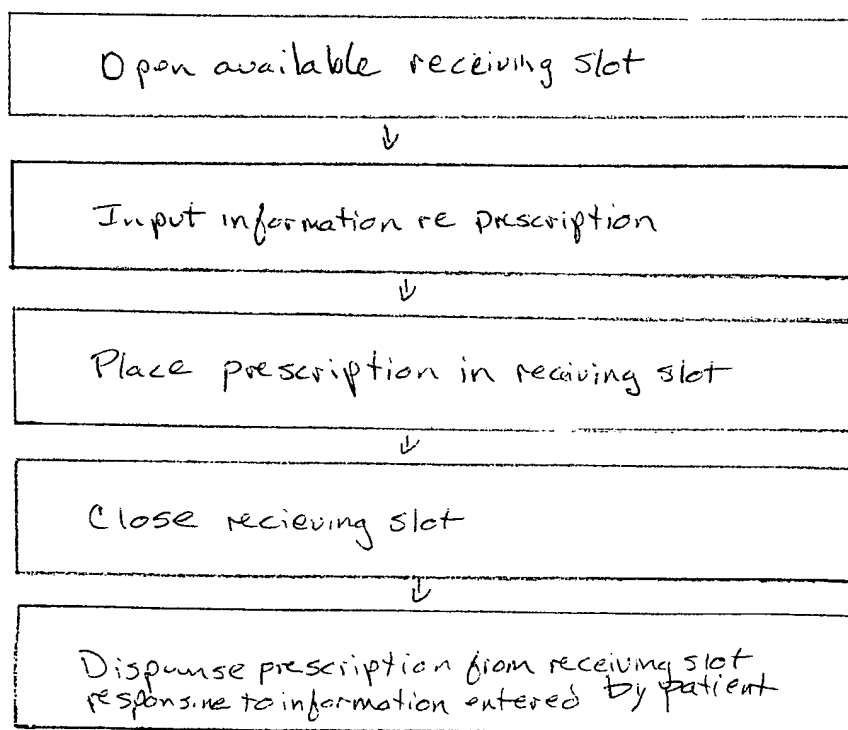 Open available receiving slot
Input information re prescription
Place prescription in reciving slot
Close recieving slot
Dispunse prescription from receiving slot
responsive to information entered by patient